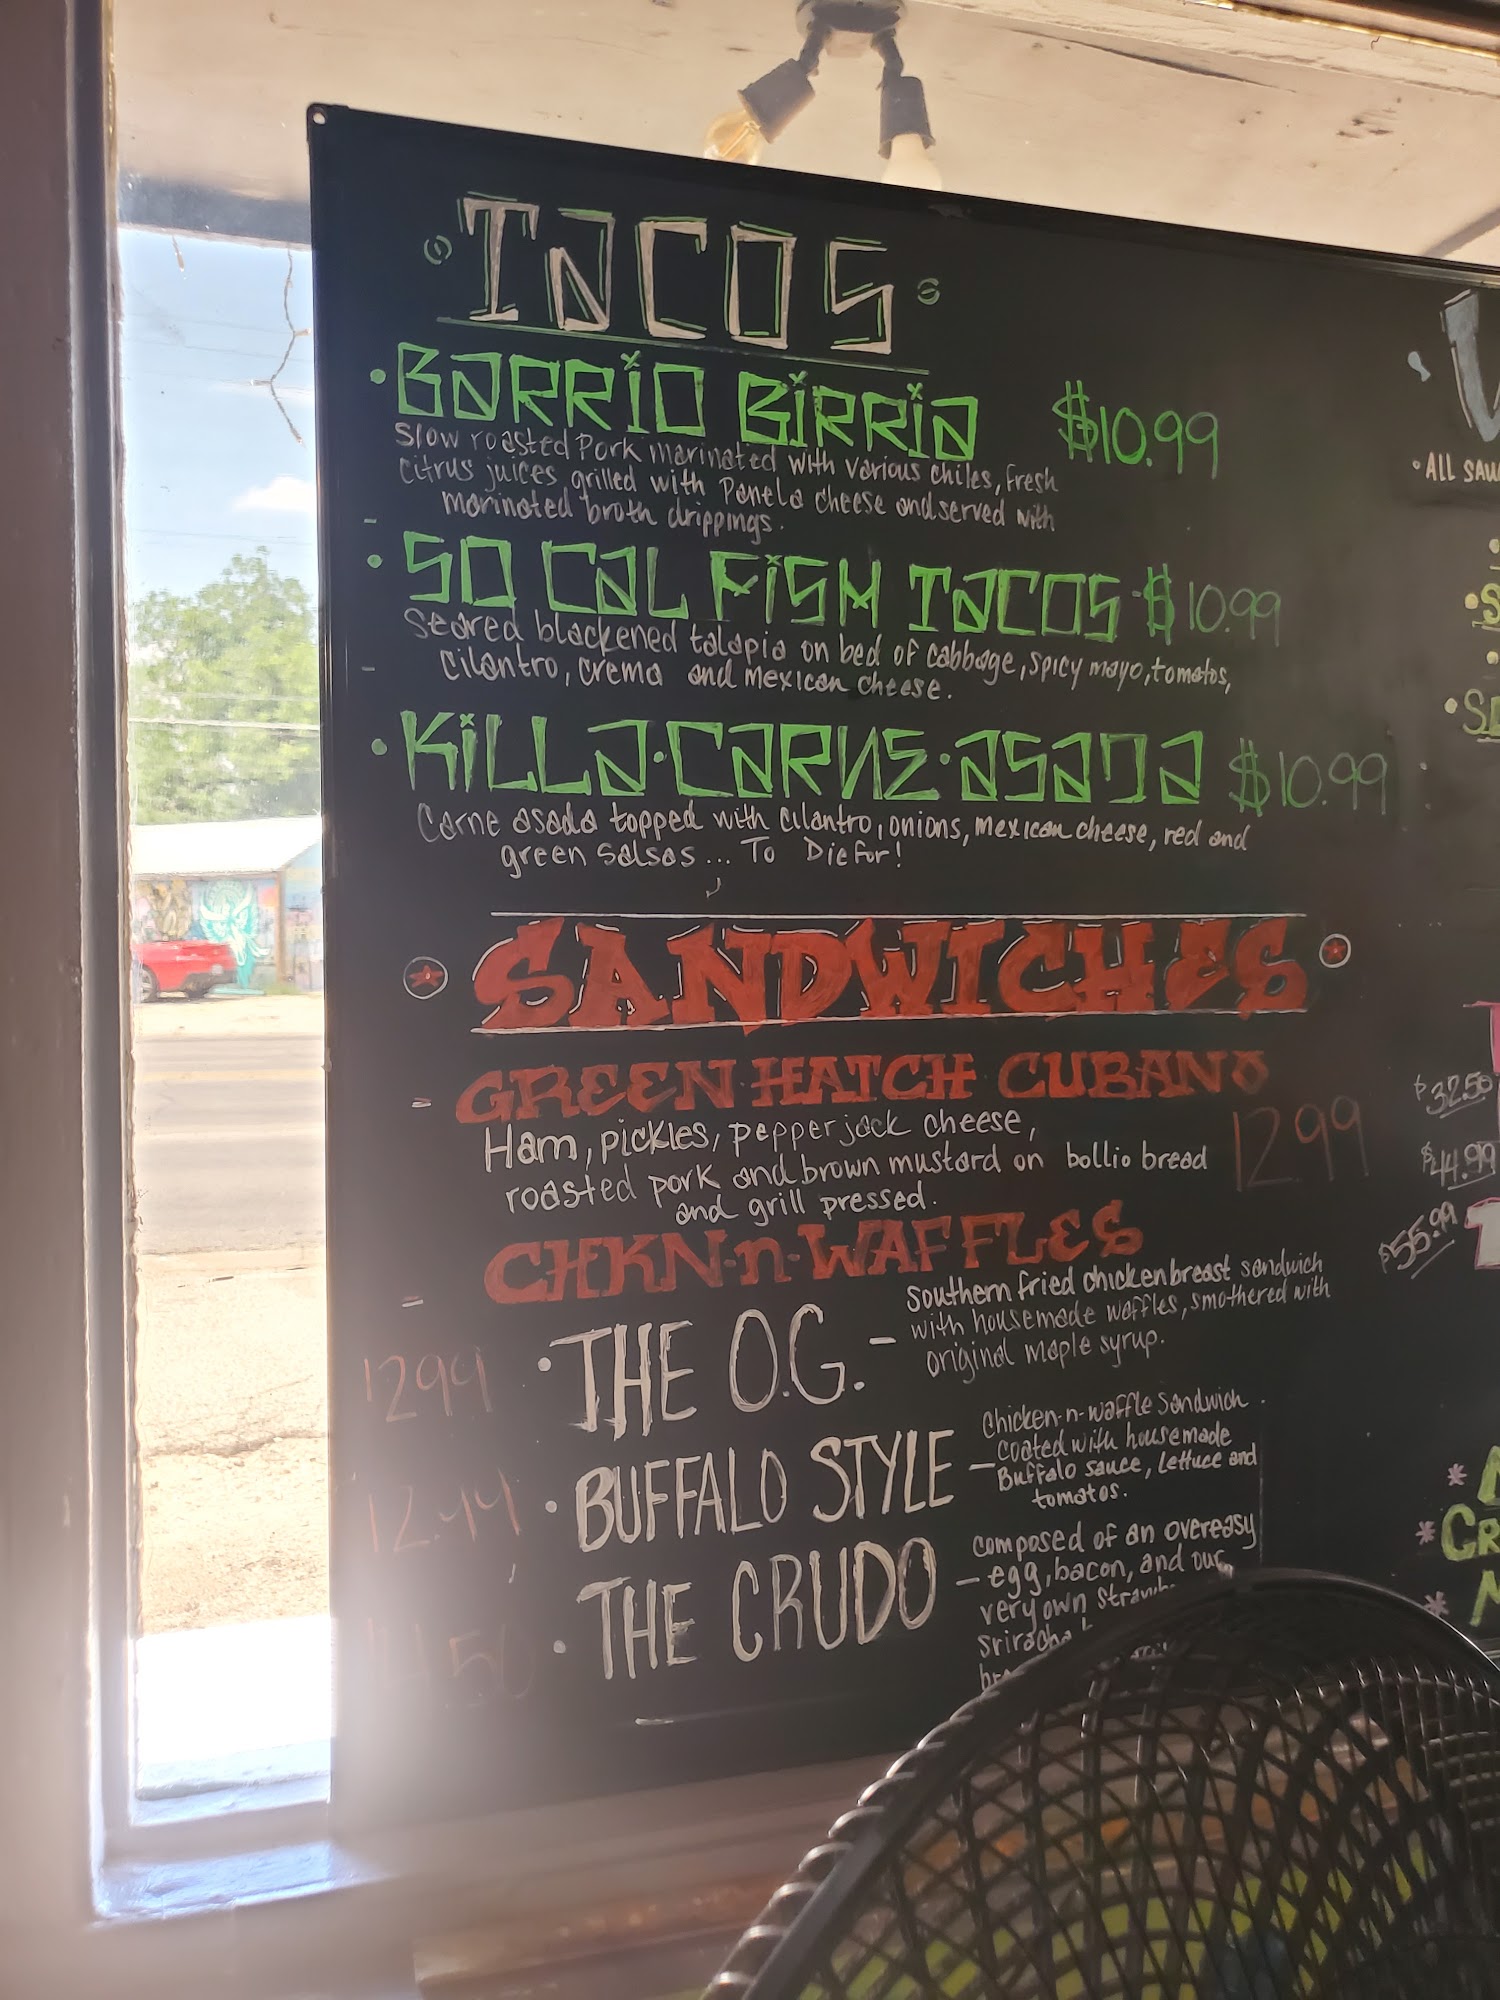 TACOS
BARRIO BIRRIA $10.99
Slow roasted Pork marinated with various chiles, fresh
citrus juices grilled with Panela cheese and served with
marinated broth drippings.
SO CAL FISH TACOS $10.99
Seared blackened talapia on bed of cabbage, spicy mayo, tomatos,
cilantro, crema and mexican cheese.
KILLA·CARNE·ASADA $10.99
Carne asada topped with cilantro, onions, mexican cheese, red and
green salsas... To Die for!
SANDWICHES
GREEN HATCH CUBANO
Ham, pickles, pepper jack cheese,
roasted pork and brown mustard on bollio bread
and grill pressed.
12.99
CHKN-n-WAFFLES
1299 · THE O.G. –
Southern fried chicken breast sandwich
with housemade waffles, smothered with
original maple syrup.
12.99 · BUFFALO STYLE –
Chicken-n-waffle Sandwich
coated with housemade
Buffalo sauce, lettuce and
tomatos.
14.50 · THE CRUDO –
composed of an overeasy
egg, bacon, and our
very own
sriracha
• ALL
$32.50
$44.99
$55.99